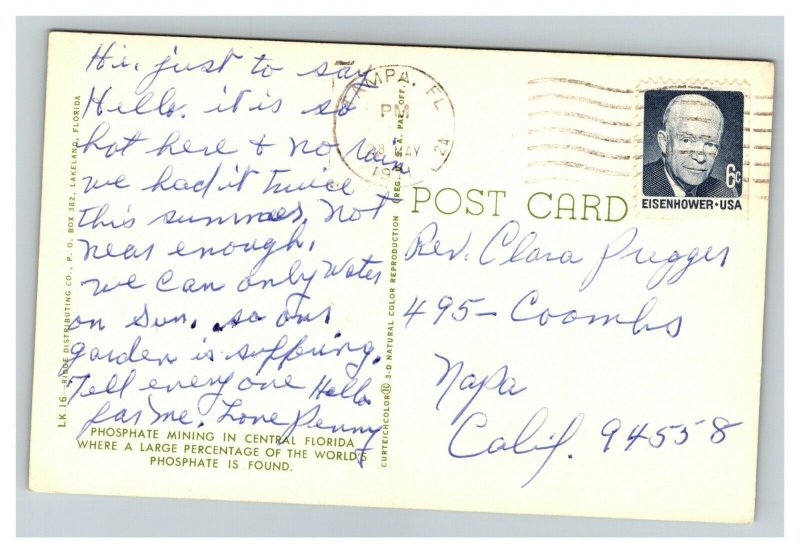 Hi, just to say
Hello. it is so
hot here & no rain
we had it twice
this summer. Not
near enough.
we can only water
on Sun. so our
garden is suffering.
Tell everyone Hello
for me. Love Penny
PHOSPHATE MINING IN CENTRAL FLORIDA
WHERE A LARGE PERCENTAGE OF THE WORLD'S
PHOSPHATE IS FOUND.
LK.16 — RIDGE DISTRIBUTING CO., P. O. BOX 382, LAKELAND, FLORIDA
CURTEICHCOLOR® 3-D NATURAL COLOR REPRODUCTION
REG. U.S.A. PAT. OFF.
TAMPA, FL
PM
28 MAY
POST CARD
6c
EISENHOWER·USA
Rev. Clara Pregger
495- Coombs
Napa
Calif. 94558